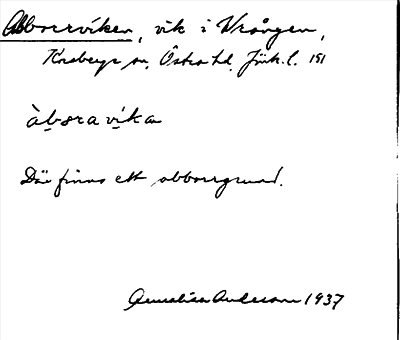 Abborrviken, vik i Vrången,
Korsberga sn, Östra hd, Jönk. l. 151
àbɔravika
Där finns ett abborrgrund.
Annalisa Anderson 1937